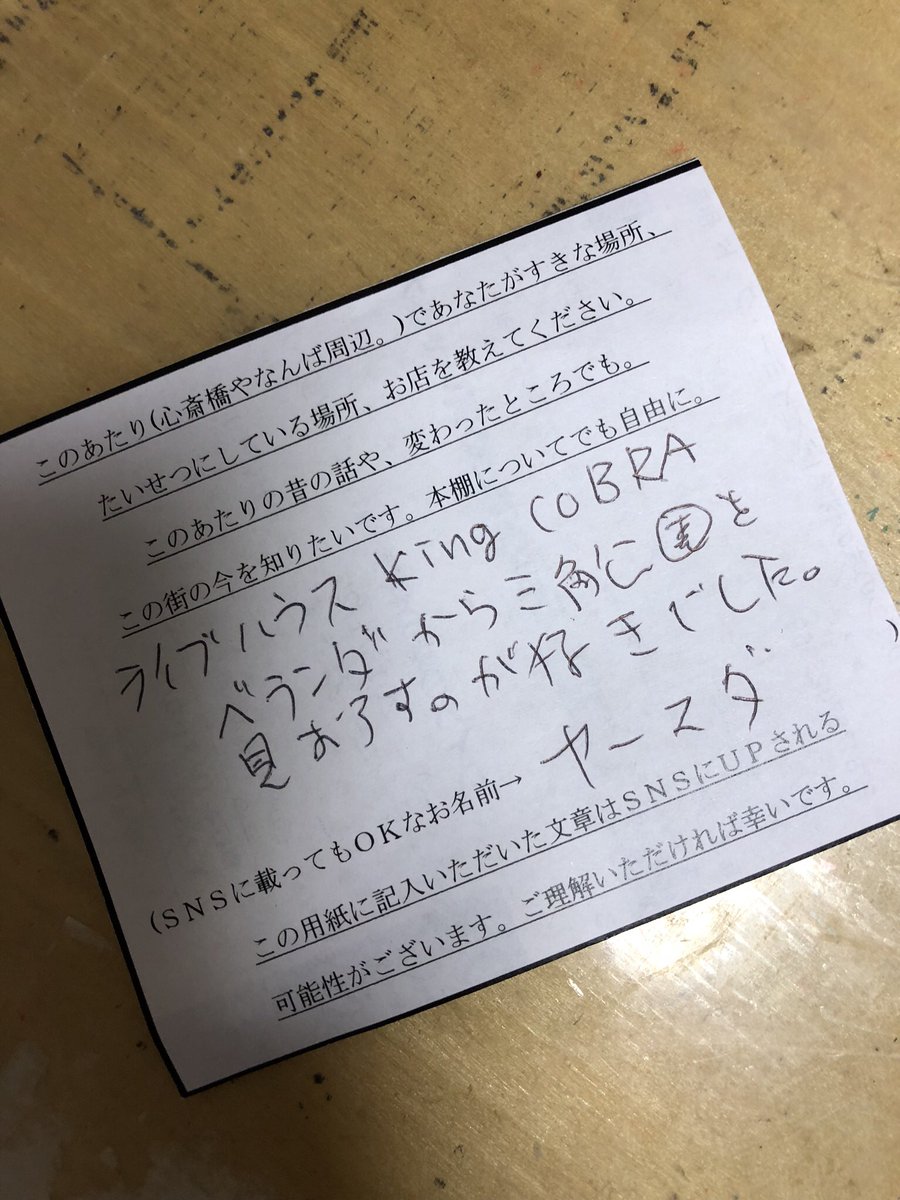 このあたり(心斎橋やなんば周辺。)であなたがすきな場所、
たいせつにしている場所、お店を教えてください。
このあたりの昔の話や、変わったところでも。
この街の今を知りたいです。本棚についてでも自由に。
ライブハウス King COBRA
ベランダから三角公園を
見おろすのが好きでした。
(SNSに載ってもOKなお名前→ ヤースダ )
この用紙に記入いただいた文章はSNSにUPされる
可能性がございます。ご理解いただければ幸いです。